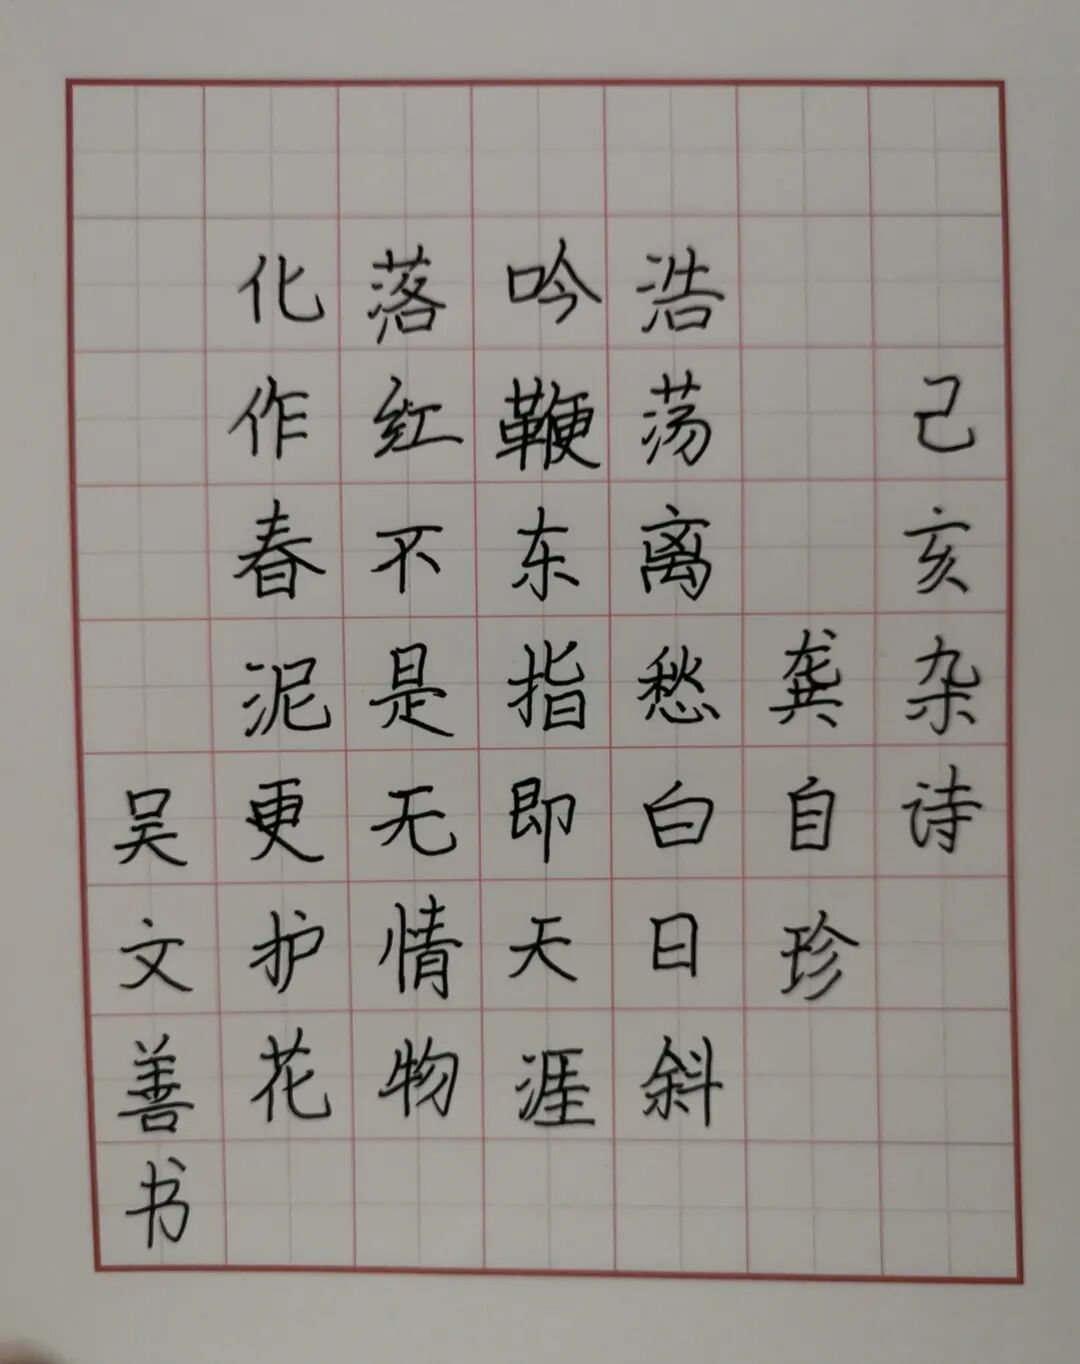 己亥杂诗
龚自珍
浩荡离愁白日斜
吟鞭东指即天涯
落红不是无情物
化作春泥更护花
吴文善书